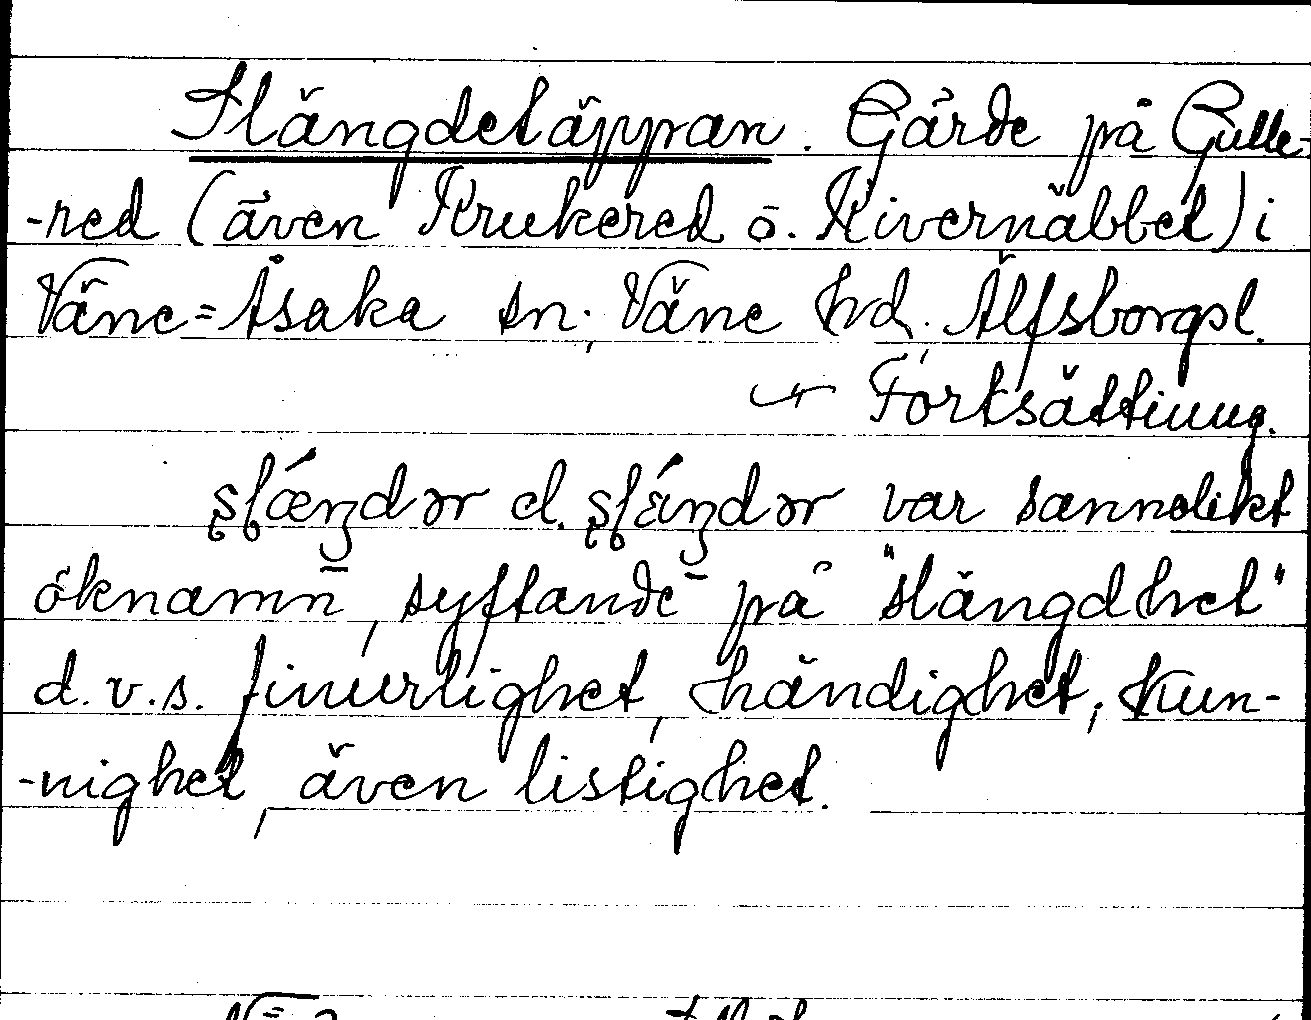 Slängdetäppan. Gärde på Gulle-
-red (även Krukered o. Kivernäbbet) i
Väne=Åsaka sn; Väne hd, Älfsborgsl.
Fortsättning.
var sannolikt
öknamn, syftande på "slängdhet"
d.v.s. finurlighet, händighet, kun-
-nighet, även listighet.